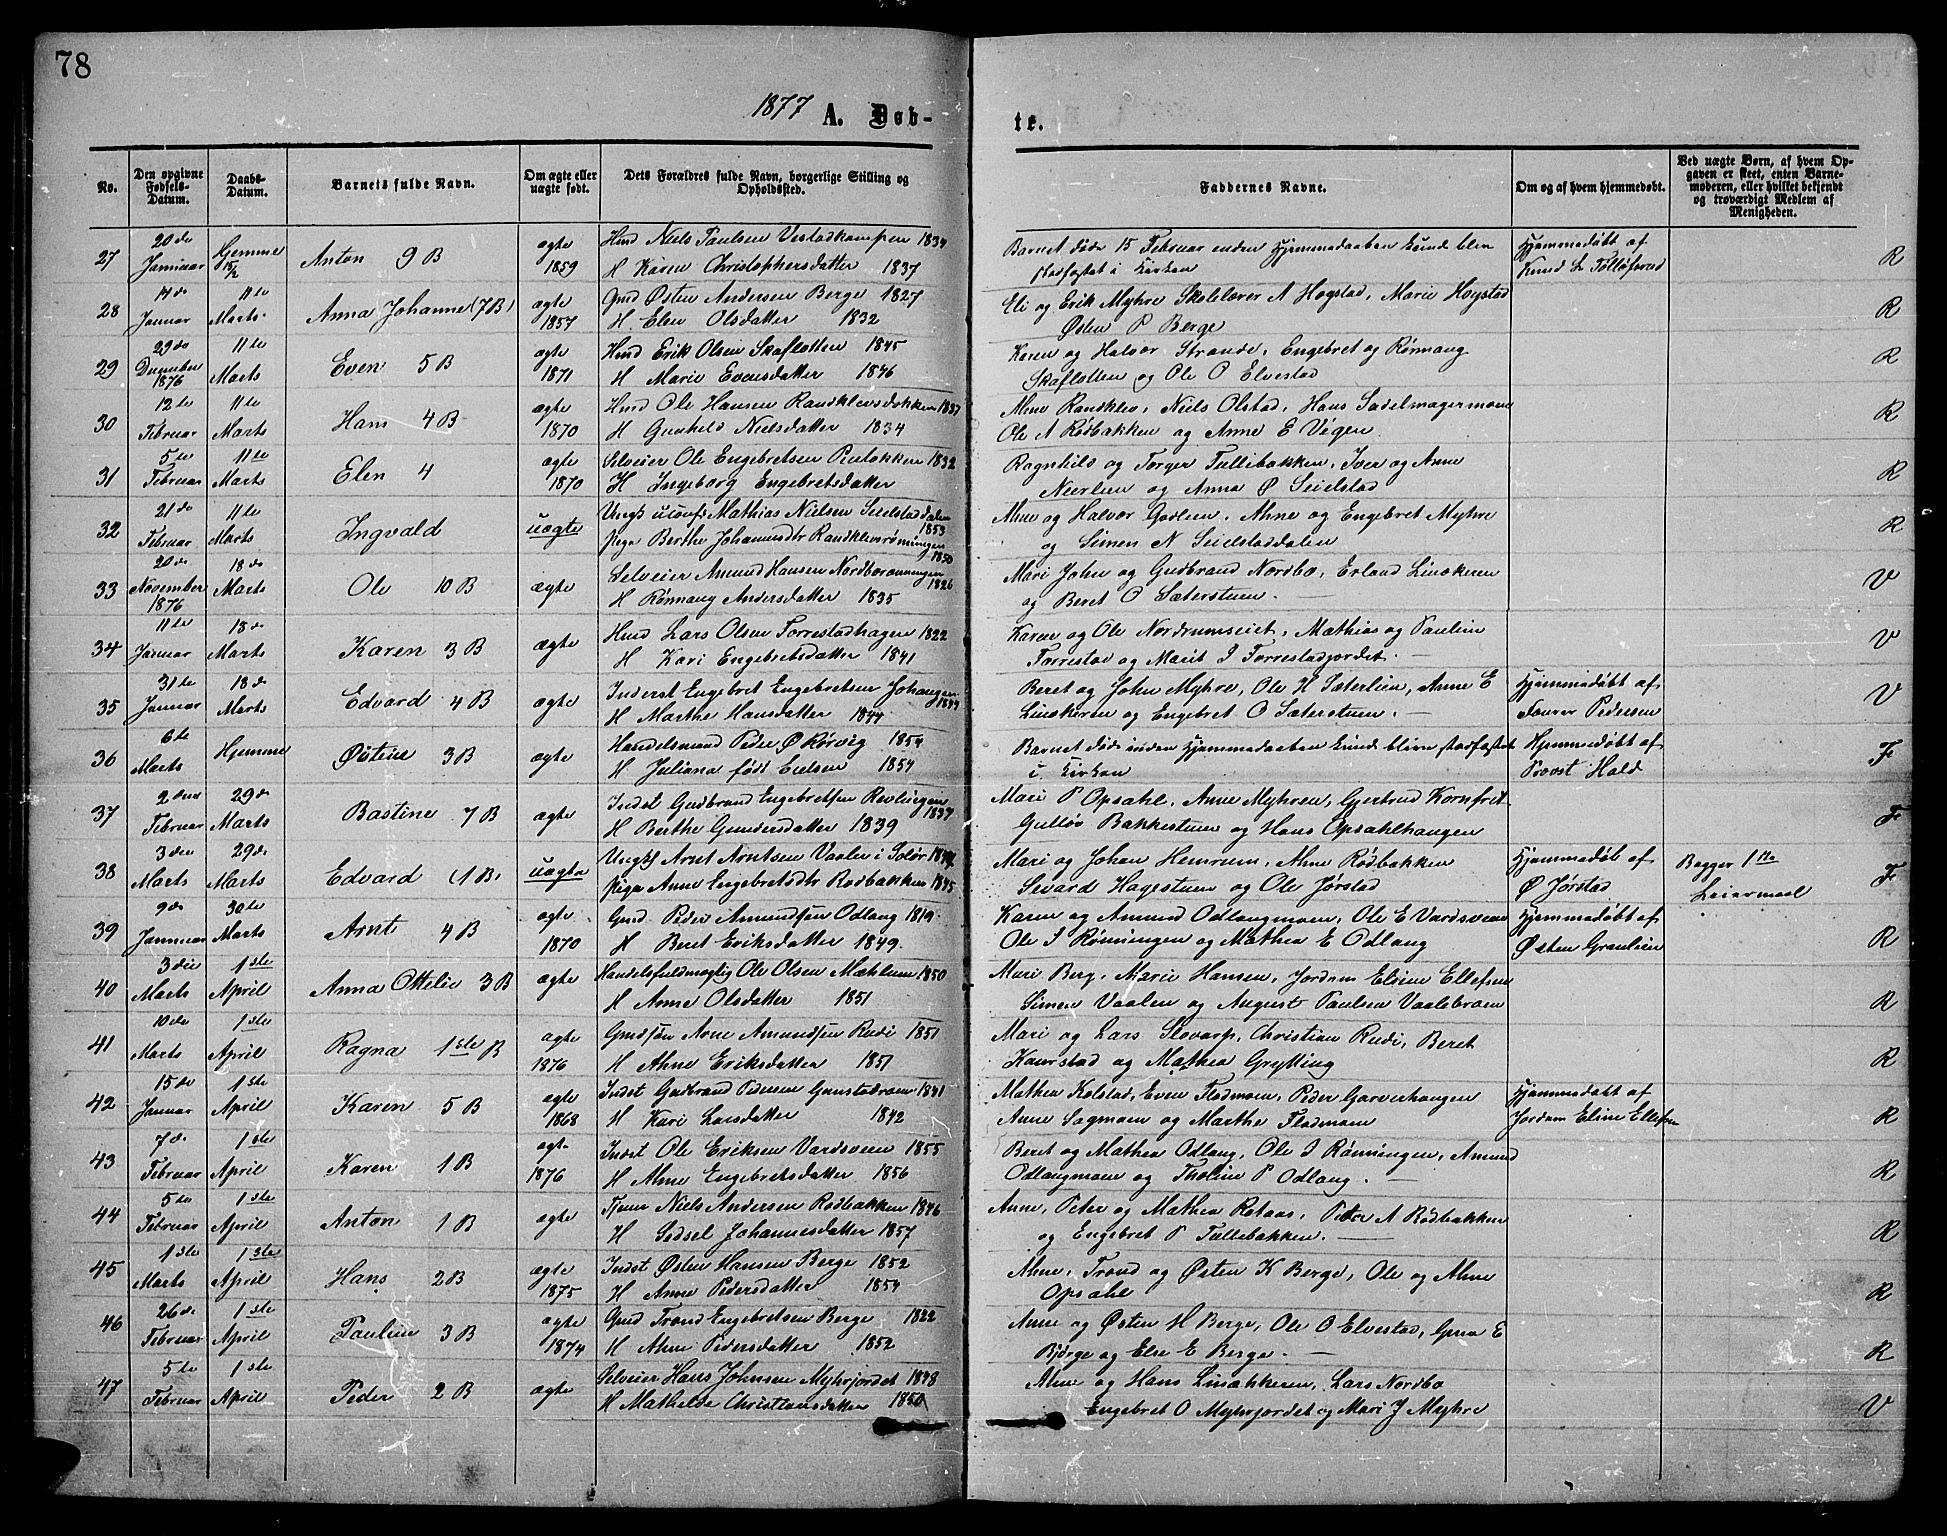 78
1877 A. Døb-
te.
No.
Den opgivne Fødsels-Datum.
Daabs-Datum.
Barnets fulde Navn.
Om ægte eller uægte født.
Dets Forældres fulde Navn, borgerlige Stilling og Opholdssted.
Faddernes Navne.
Om og af hvem hjemmedøbt.
Ved uægte Børn, af hvem Opgaven er skeet, enten Barnemoderen, eller hvilket bekjendt og troværdigt Medlem af Menigheden.
27 20de Januar Hjemme 15/2 Anton 9 B ægte 1859
Hmd Niels Paulsen Vestadkampen 1834
H Karen Christophersdatter 1837
Barnet døde 15 Februar inden Hjemmedaaben kunde blive
stadfæstet i Kirken
Hjemmedøbt af
Knud L
R
28 Januar 11te Marts Anna Johanne (7 B) ægte 1857
Gmd Østen Andersen Berge 1827
H. Elen Olsdatter 1832
Eli og Erik Myhre Skolelærer A Høgstad, Marie Høgstad
Østen P Berge
R
29 29de December 1876 11te Marts Even 5 B ægte 1871
Hmd Erik Olsen Skafløtten 1845
H Marie Evensdatter 1846
Karen og Halvor Strande, Engebret og Rønnaug
Skafløtten og Ole O Elvestad
R
30 12te Februar 11te Marts Hans 4 B ægte 1870
Hmd Ole Hansen Randklevsbakken 1837
H Gunhild Nielsdatter 1834
Ahne Randklev, Niels Olstad, Hans Sadelmagermoen
Ole A Rødbakken og Anne E Vigen
R
31 5te Februar 11te Marts Elen 4 ægte 1870
Selveier Ole Engebretsen 1832
H Ingeborg Engebretsdatter
Ragnhild og Torger Tullebakken, Iver og Anne
og Anna Ø Seielstad
R
32 21de Februar 11te Marts Ingvald uægte
Mathias Nielsen Seielstaddalen 1853
Pige Berthe Johannesdtr Randklevsrønningen 1850
Ahne og Halvor, Ahne og Engebret Myhre
og Simen N Seielstaddalen
R
33 20de November 1876 18de Marts Ole 10 B ægte
Selveier Amund Hansen Nordborønningen 1826
H Rønnaug Andersdatter 1835
Mari John og Gudbrand Nordbo, Erland Linækeren
og Beret O Sæterstuen.
V
34 11te Januar 18de Marts Karen 3 B ægte
Hmd Lars Olsen Forrestadhagen 1822
H Kari Engebretsdatter 1841
Karen og Ole Nordrumseiet, Mathias og Pauline
Forrestad og Marit I Forrestadjordet.
V
35 31te Januar 18de Marts Edvard 4 B ægte
Inderst Engebret Engebretsen 1844
H Marthe Hansdatter 1844
Beret og John Myhre, Ole H Sæterlien, Anne E
Linækeren og Engebret O Sæterstuen.
Hjemmedøbt af
Pedersen
V
36 6te Marts Hjemme Østens 3 B ægte
Handelsmand Peder Ø Rørvig 1854
H Juliana født 1854
Barnet døde inden Hjemmedaaben kunde blive stadfæstet
i Kirken
Hjemmedøbt af
Provst Hald
F
37 2den Februar 29de Marts Bastine 7 B ægte
Indst Gudbrand Engebretsen 1837
H Berthe Gundersdatter 1839
Mari P Opsahl, Anne Myhren, Gjertrud Kornfrit
Bakkestuen og Hans Opsahlhaugen
F
38 3die Marts 29de Marts Edvard (1 B) uægte
Ungk Arnt Arntsen Vaaler i Solør
Pige Anne Engebretsdtr Rødbakken 1845
Mari og Johan Hemrum, Ahne Rødbakken
Sevard Hagestuen og Ole Jørstad
Hjemmedøb af
Ø Jørstad
Begges 1ste
Leiermaal
F
39 9de Januar 30te Marts Arnt 4 B ægte 1870
Gmd Peder Amundsen Odlaug 1819
H Beret Eriksdatter 1849.
Karen og Amund Odlaugmoen, Ole E Vardsveen
Ole I Rønningen og Mathea E Odlaug
Hjemmedøbt af
Østen Graulien
R
40 3die Marts 1ste April Anna Ottelie 3 B ægte
Handelsfuldmægtig Ole Olsen Mæhlum 1850
H Anne Olsdatter 1851
Mari Berg, Marie Hansen, Jordem Eline Ellefsen
Simen Vaalen og August Paulsen Vaalebroen
R
41 10de Marts 1ste April Ragna 1ste B ægte 1876
Gmdsøn Arne Amundsen Rudi 1851
H Ahne Eriksdatter 1851
Mari og Lars, Christian Rudi, Beret
Kaurstad og Mathea Grytting
R
42 15de Januar 1ste April Karen 5 B ægte 1868
Indst Gudbrand Pedersen Gunstadmoen 1841
H Kari Larsdatter 1842
Mathea Kolstad, Even Fladmoen, Peder Garverhaugen
Anne Sagmoen og Marthe Fladmoen
Hjemmedøbt af
Jordem Eline Ellefsen
R
43 7de Februar 1ste April Karen 1 B ægte 1876
Indst Ole Eriksen Vardsveen 1855
H Ahne Engebretsdatter 1856
Beret og Mathea Odlaug, Ole I Rønningen, Amund
Odlaugmoen og Tholine P Odlaug.
R
44 5te Februar 1ste April Anton 1 B ægte
Tjener Niels Andersen Rødbakken 1846
H Sedsel Johannesdatter 1857
Anne, Peter og Mathea Rataas, Peter A Rødbakken
og Engebret P Tullebakken.
R
45 1ste Marts 1ste April Hans 2 B ægte 1875
Indst Østen Hansen Berge 1852
H Anne Pedersdatter 1854
Ahne, Trond og Østen K Berge, Ole og Ahne
Opsahl
R
46 26de Februar 1ste April Pauline 3 B ægte 1874
Gmd Trond Engebretsen Berge 1822
H Ahne Pedersdatter 1852
Anne og Østen H Berge, Ole O Elvestad, E
Bjørge og Else E Berge.
R
47 5te Februar 1ste April Peder 2 B ægte
Selveier Hans Johnsen Myhrjordet 1848
H Mathilde Christiansdatter 1850
Ahne og Hans Linækkeren, Lars Nordbo
Engebret O Myhrjordet og Mari J Myhre
V